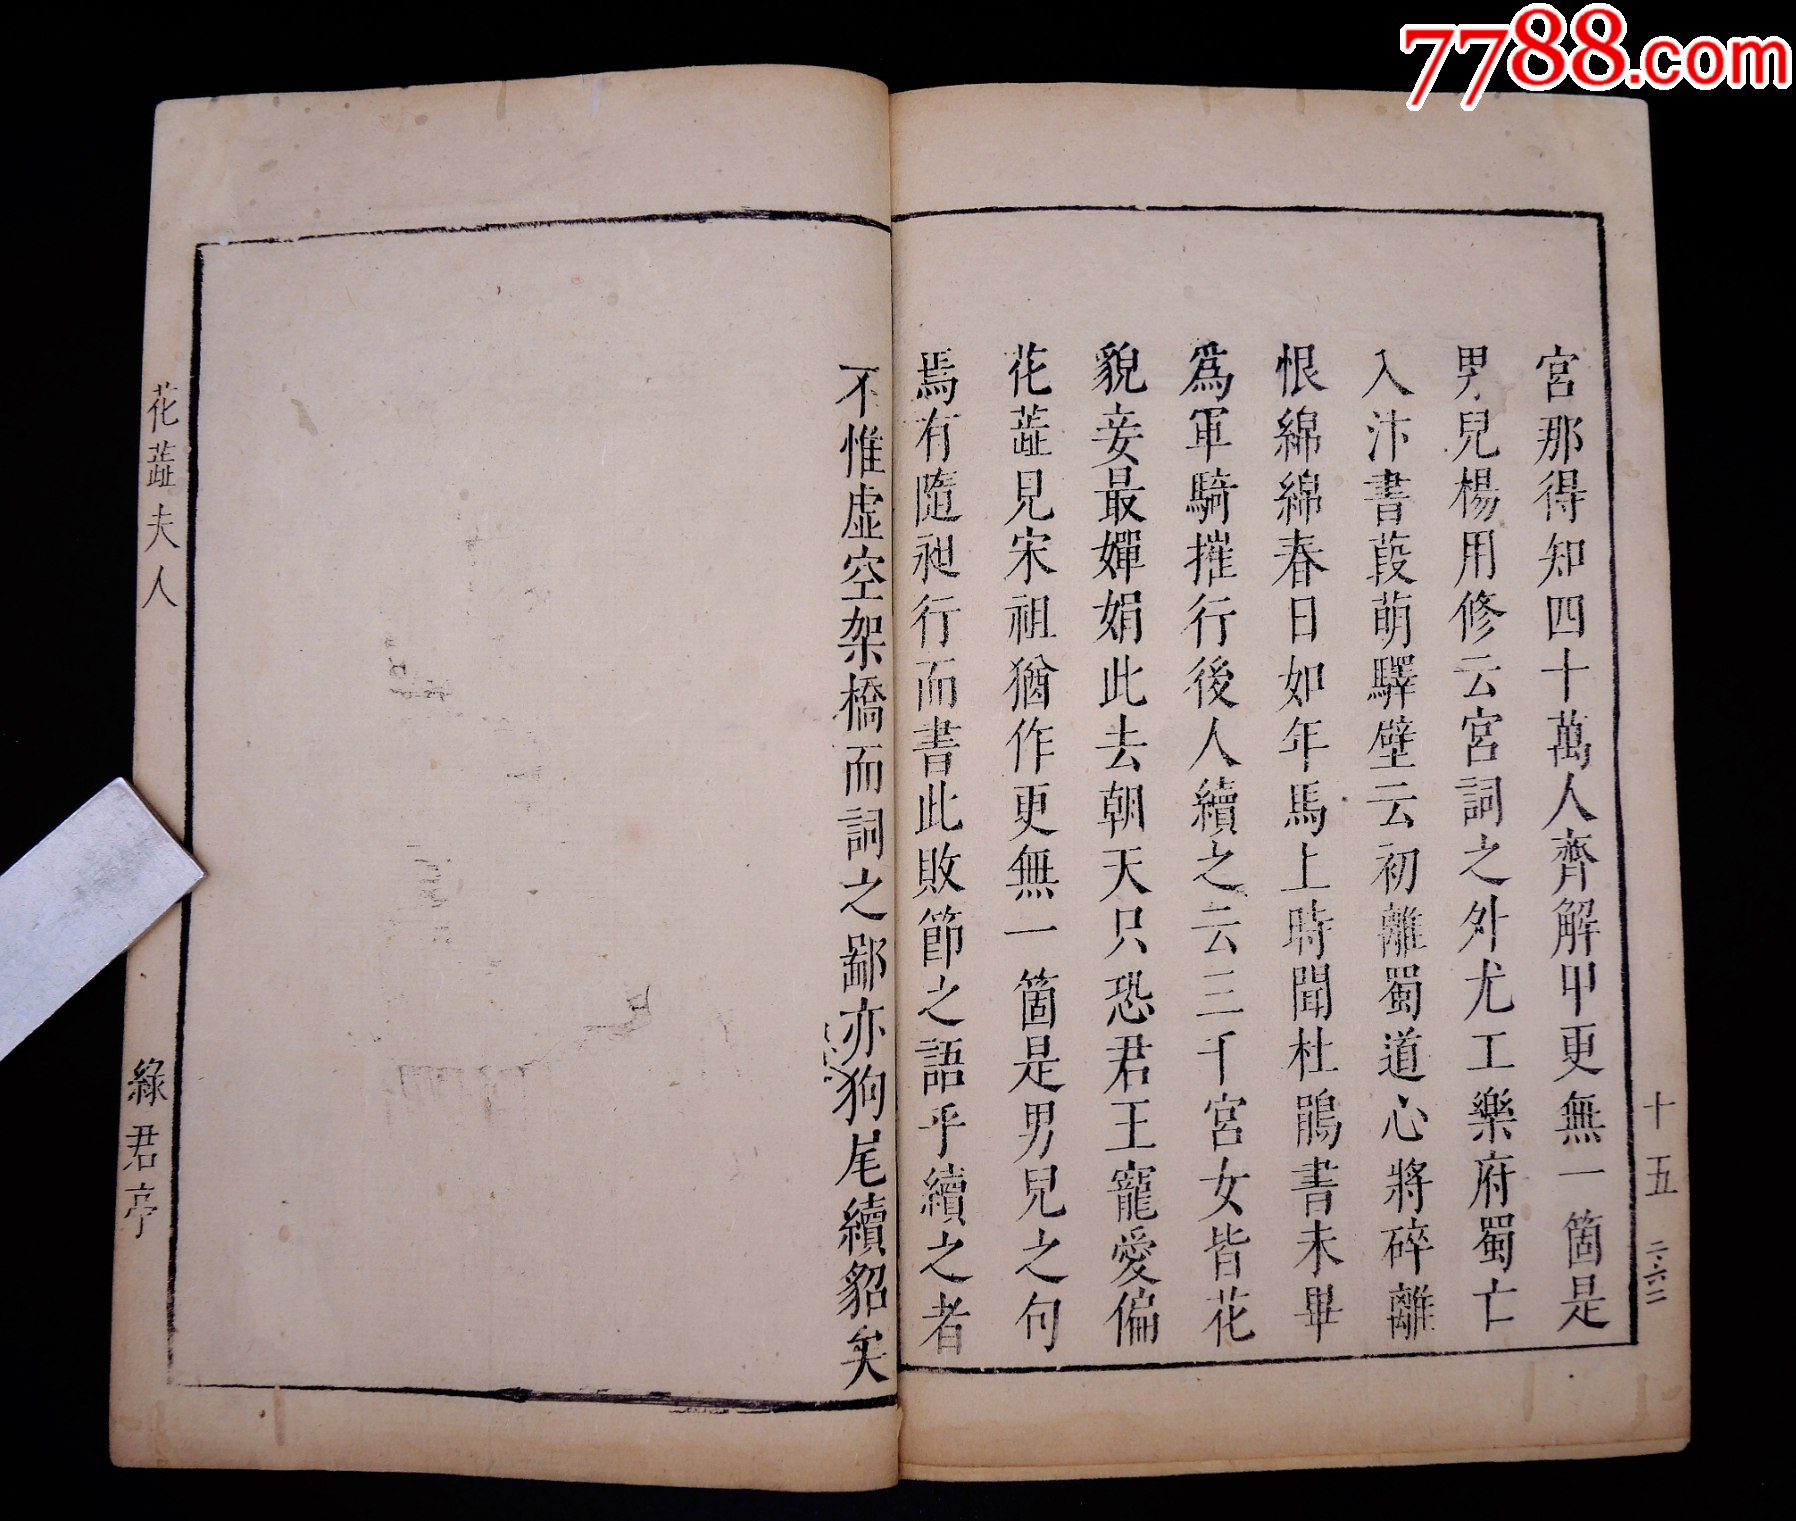 7788.com
宮那得知四十萬人齊解甲更無一箇是
男兒楊用修云宮詞之外尤工樂府蜀亡
入汴書葭萌驛壁云初離蜀道心將碎離
恨綿綿春日如年馬上時聞杜鵑書未畢
爲軍騎摧行後人續之云三千宮女皆花
貌妾最嬋娟此去朝天只恐君王寵愛偏
花蘂見宋祖猶作更無一箇是男兒之句
焉有隨昶行而書此敗節之語乎續之者
不惟虛空架橋而詞之鄙亦狗尾續貂矣
十五
二六二
花蘂夫人
綠君亭